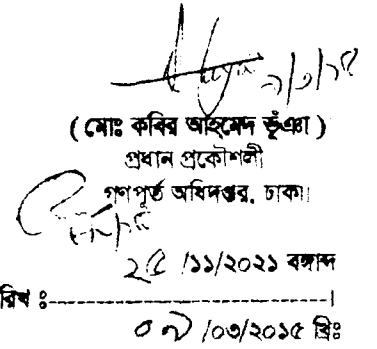 ৯/৩/১৫
( মোঃ কবির আহমেদ ভূঁঞা )
প্রধান প্রকৌশলী
গণপূর্ত অধিদপ্তর, ঢাকা।
২৫ /১১/২০২১ বঙ্গাব্দ
রিখ ঃ-----------------------------------।
০৯ /০৩/২০১৫ খ্রিঃ